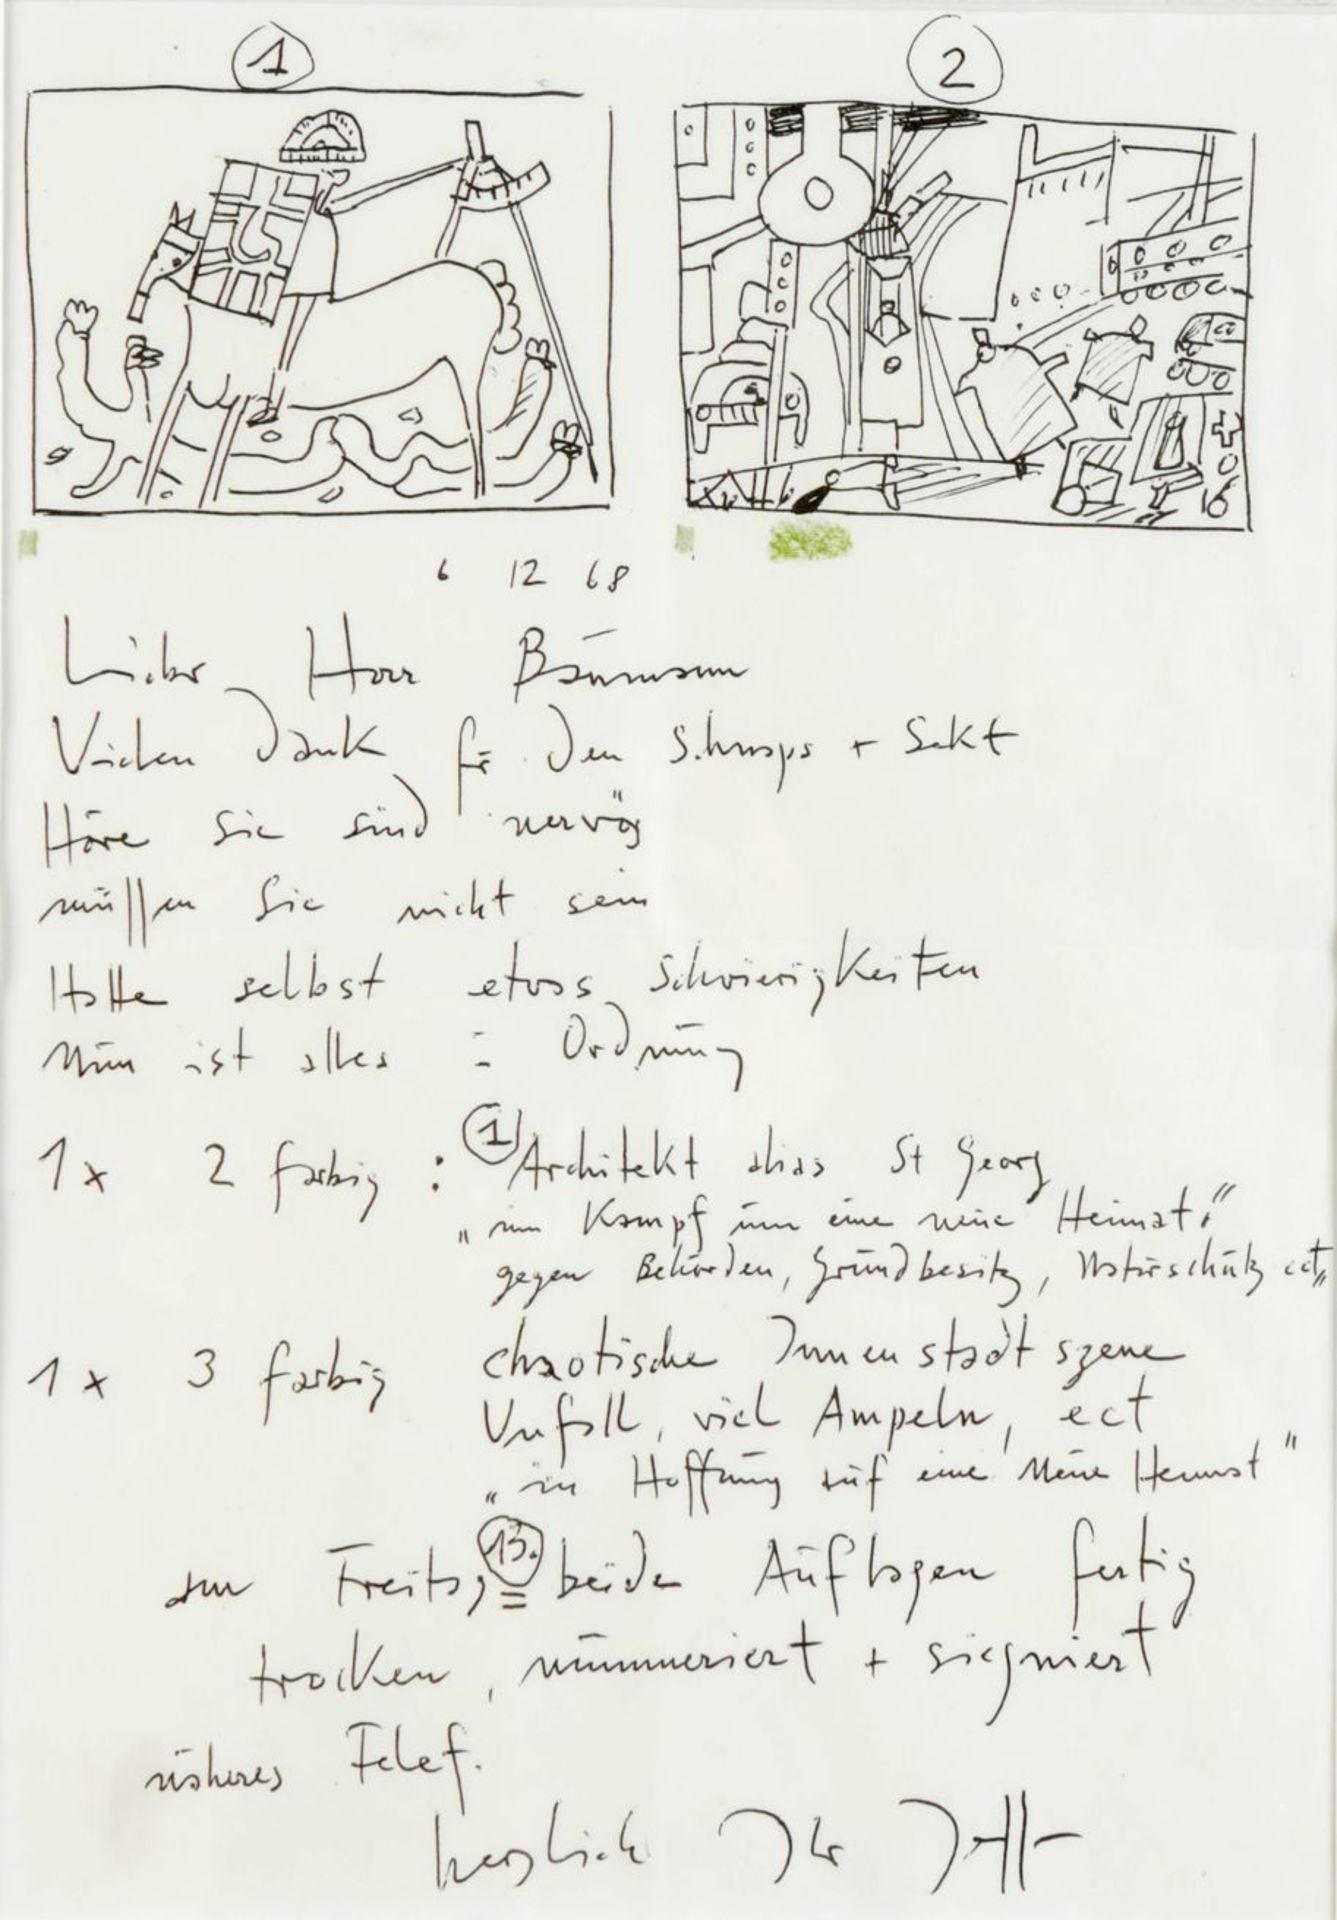 1
2
16
6 12 68
Lieber Herr Bäumann
Vielen Dank für den Schnaps + Sekt
Höre Sie sind nervös
müssen Sie nicht sein
Hatte selbst etwas Schwierigkeiten
Nun ist alles in Ordnung
1x 2 farbig : 1 Architekt alias St Georg
„im Kampf um eine neue Heimat"
gegen Behörden, Grundbesitz, Naturschutz ect„
1x 3 farbig chaotische Innenstadtszene
Unfall, viel Ampeln, ect
„in Hoffnung auf eine Neue Heimat"
am Freitag 13. beide Auflagen fertig
trocken, nummeriert + siegniert
näheres Telef.
herzlich Ihr